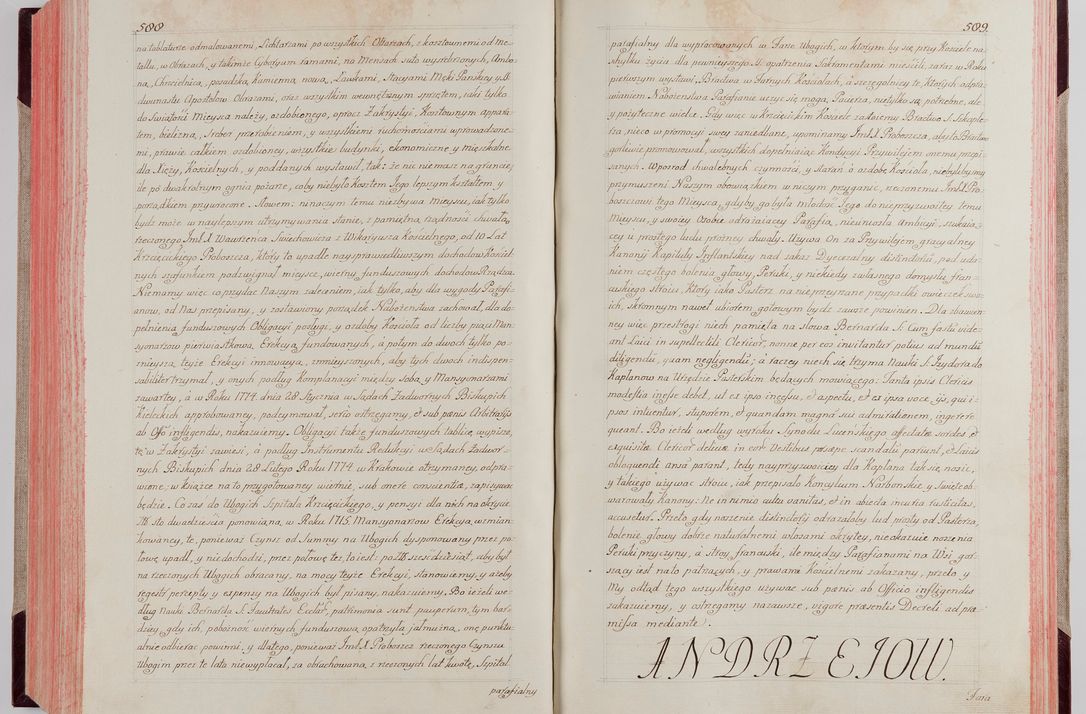 508
na tablaturze odmalowanemi, Lichtarzami po wszystkich Ołtarzach, z kosztownemi od me-
tallu, w Obrazach, y takimże Cyboryum ramami, na Mensach suto wysrebrzonych, Ambo-
na, Chrzcielnica, posadzka Kamienna nowa, Ławkami, Stacyami Męki Panskiey y SS.
dwunastu Apostołow Obrazami, oraz wszystkim wewnętrznym sprzętem, iaki tylko
do swiątości Mieysca należy, ozdobionego, oprocz Zakrystyi, Kosztownym appara-
tem, bielizną, srebr przerobieniem, y wszystkiemi ruchomosciami wprowadzone-
mi, prawie całkiem ozdobioney, wszystkie budynki, ekonomiczne y mieszkalne
dla Xięży, Koscielnych, y poddanych wystawił, tak: że nic niemasz na gruncie,
ile po dwakrotnym ognia pożarze, coby niebyło kosztem Jego lepszym kształtem y
porządkiem przywrocone. Słowem: ninaczym temu niezbywa mieyscu, iak tylko
bydz może w naylepszym utrzymywania stanie, z pamiętną rządnosci chwałą
rzeczonego Jmci X. Wawrzeńca Swiechowicza z Wikaryusza Koscielnego, od 10. Lat
Krzęcickiego Proboszcza, ktory to upadłe naysprawiedliwszym dochodow Kosciel-
nych szafunkiem, podzwignął mieysce, wierny funduszowych dochodow Rządzca.
Niemamy więc co przydać Naszym zaleceniem, iak tylko, aby dla wygody Parafi-
anow, od Nas przepisany, y zostawiony porządek Nabożenstwa zachował, dla do-
pełnienia funduszowych Obligacyi posługi, y ozdoby Kościoła od liczby pięciu Man-
syonarzow pierwiastkową Erekcyą fundowanych, a potym do dwoch tylko po-
mnieyszą teyże Erekcyi innowacyą, zmnieyszonych, aby tych dwoch indispen-
sabiliter trzymał, y onych podług Komplanacyi między Sobą, y Mansyonarzami
zawartey, a w Roku 1774. dnia 28 Stycznia w Sądach Zadwornych Biskupich
Kieleckich approbowaney, podeymował, serio ostrzegamy, et sub pœnis Arbitrariis
ab Offo infligendis, nakazuiemy. Obligacyi także funduszowych tablicę wypisze,
te w Zakrystyi zawiesi, a podług Instrumentu Redukcyi w Sądach Zadwor-
nych Biskupich dnia 28 Lutego Roku 1774 w Krakowie otrzymaney, odpra-
wione, w książce na to przygotowaney wiernie, sub onere conscientiæ, zapisywać
będzie. Co zaś do Ubogich Szpitala Krzęcickiego, y pensyi dla nich na okrycie
Zł. sto dwadziescia ponowioną w Roku 1715. Mansyonarzow Erekcyą, wzmian-
kowaney, te, ponieważ Czynsz od Summy na Ubogich dysponowany przez po-
łowę upadł, y niedochodzi, przez połowę też, to iest: po Zł. szescdziesiąt, aby był
na rzeczonych Ubogich obracany, na mocy teyże Erekcyi, stanowiemy, y ażeby
regestr percepty y expensy na Ubogich był pisany, nakazuiemy. Bo ieżeli we-
dług Nauki Bernarda S. Facultates Eccliæ, patrimonia sunt pauperum, tym bar-
dziey, gdy ich, pobożność wiernych funduszową opatrzyła jałmużną, onę punktu-
alnie odbierać powinni, y dlatego, ponieważ Jmci X. Proboszcz rzeczonego Czynszu
Ubogim przez te lata niewypłacał, za obrachowaną z rzeczonych lat kwotę, Szpital
parafialny
509
parafialny dla wypracowanych w Farze Ubogich, w ktorym by się przy Kosciele na
schyłku życia dla pewnieyszego SS. opatrzenia Sakramentami miescili, zaraz w Roku
pierwszym wystawi. Bractwa w Farnych Kosciołach, a szczegolniey te, Ktorych odpra-
wianiem Nabożenstwa Parafianie uczyć się mogą Pacierza, nietylko są potrzebne, ale
y pożyteczne wielce. Gdy więc w Krzecickim Kosciele zadawiemy Bractwo S. Szkaple-
rza, nieco w promocyi swey zaniedbane, upominamy Jmci X. Proboszcza, aby to Bractwo
gorliwie promowował, wszystkich dopełniaiąc Kondycyi Przywileiem onemu przepi-
sanych. Wporzod chwalebnych czynności, y starań o ozdobę Koscioła, niebylibyśmy
przymuszeni Naszym obowiązkiem w niczym przyganić, rzeczonemu Jmci X. Pro-
boszczowi tego Mieysca, gdyby go była młodość Jego do nieprzyzwoitey temu
Mieyscu, y swoiey Osobie odrażaiącey Parafią, nieuniosła Ambicyi, szukaią-
cey u prostego ludu prozney chwały. Używa On za Przywileiem gracyalney
Kanonii Kapituły Inflantskiey nad zakaz Dyecezalny distinctorii, pod uda-
niem częstego bolenia głowy, Peruki, y niekiedy własnego domysłu fran-
cuskiego stroiu, Ktory iako Pasterz na nieprzyznane przypadki owieczek swo-
ich, skromnym nawet ubiorem gotowym bydz zawsze powinien. Dla zbawien-
ney więc przestrogi niech pamięta na słowa Bernarda S. Cum fastu vide-
ant Laici in supellectili Clericor, nonne per eos invitantur potius ad mundū
diligendū, quam negligendū; a raczey niech się trzyma Nauki S. Izydora do
Kapłanow na Urzędzie Pasterskim będących mowiącego: Tanta ipsis Clericis
modestia inesse debet, ut ex ipso incessu, et aspectu, et ex ipsa voce ijs, qui i-
psos intuentur, stuporem, et quandam magnā sui admirationem, ingerere
queant. Bo ieżeli według wyroku Synodu Luceńskiego affectatæ sordes, et
exquisitæ Clericor deliciæ, in eor vestibus, sæpe scandalū pariunt, et Laicis
obloquendi ansā parant, tedy nayprzyzwoiciey dla Kapłana tak się nosić,
y takiego używać stroiu, iak przepisało Koncylium Narbonskie, y Swięte ob-
warowały Kanony: Ne in nimio cultu vanitas, et in abiecto nimia rusticitas,
accusetur. Przeto gdy noszenie distinctorij odrażałoby lud prosty od Pasterza,
bolenie głowy dobrze naturalnemi włosami okrytey, nieokazuie noszenia
Peruki przyczyny, a stroy francuski, ile między Parafianami na Wsi gor-
szący iest na to patrzących, y prawami Kościelnemi zakazany, przeto y
My odtąd tego wszystkiego używać sub pœnis ab Officio infligendis
zakazuiemy, y ostrzegamy nazawsze, vigore præsentis Decreti ad præ-
missa mediante.
ANDRZEIOW.
Fara